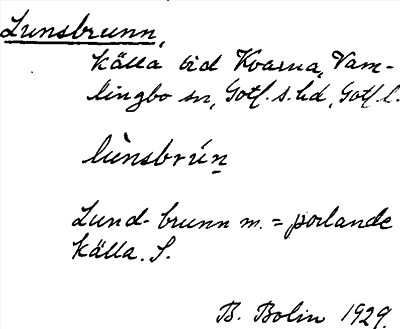 Lunsbrunn,
källa vid Kvarna, Vam-
lingbo sn, Gotl. s. hd, Gotl. l.
lùnsbrún
Lund-brunn m. = porlande
källa. S.
B. Bolin 1929.